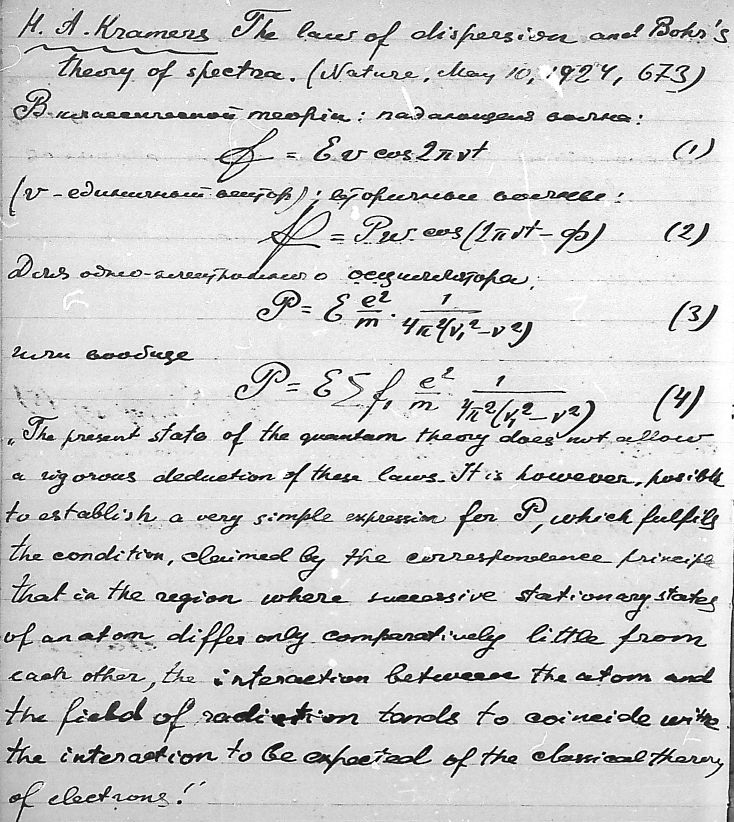 H. A. Kramers The law of dispersion and Bohr's
theory of spectra. (Nature, May 10, 1924, 673)
В классической теории: падающая волна:
𝓔 = E v cos 2πνt (1)
(v - единичный вектор); вторичные волны:
= P w cos (2πνt - φ) (2)
Для одно-электронного осциллятора,
P = E e²/m · 1/4π²(ν₁² - ν²) (3)
или вообще
P = E Σ f₁ e²/m 1/4π²(ν₁² - ν²) (4)
„The present state of the quantum theory does not allow
a rigorous deduction of these laws. It is however, posible
to establish a very simple expression for P, which fulfils
the condition, claimed by the correspondence principle
that in the region where successive stationary states
of an atom differ only comparatively little from
each other, the interaction between the atom and
the field of radiation tends to coincide with
the interaction to be expected of the classical theory
of electrons."